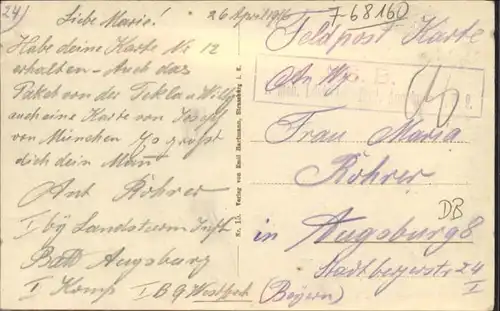 24)
Liebe Marie!
26 April 1916
Habe deine Karte Nr 12
erhalten - Auch das
Paket von der Tekla u Willy
auch eine Karte von Josef
von München Es grüßt
dich dein Mann
Ant Röhrer
I bÿ Landsturm Inft
Batl Augsburg
I Komp I B 9 Westfrot
Nr. 115. Verlag von Emil Hartmann, Strassburg i. E.
768160
Feldpost Karte
An
S. B.
Frau Maria
Röhrer
DB
in Augsburg 8
Stadtbergerstr 24
I
(Beyern)